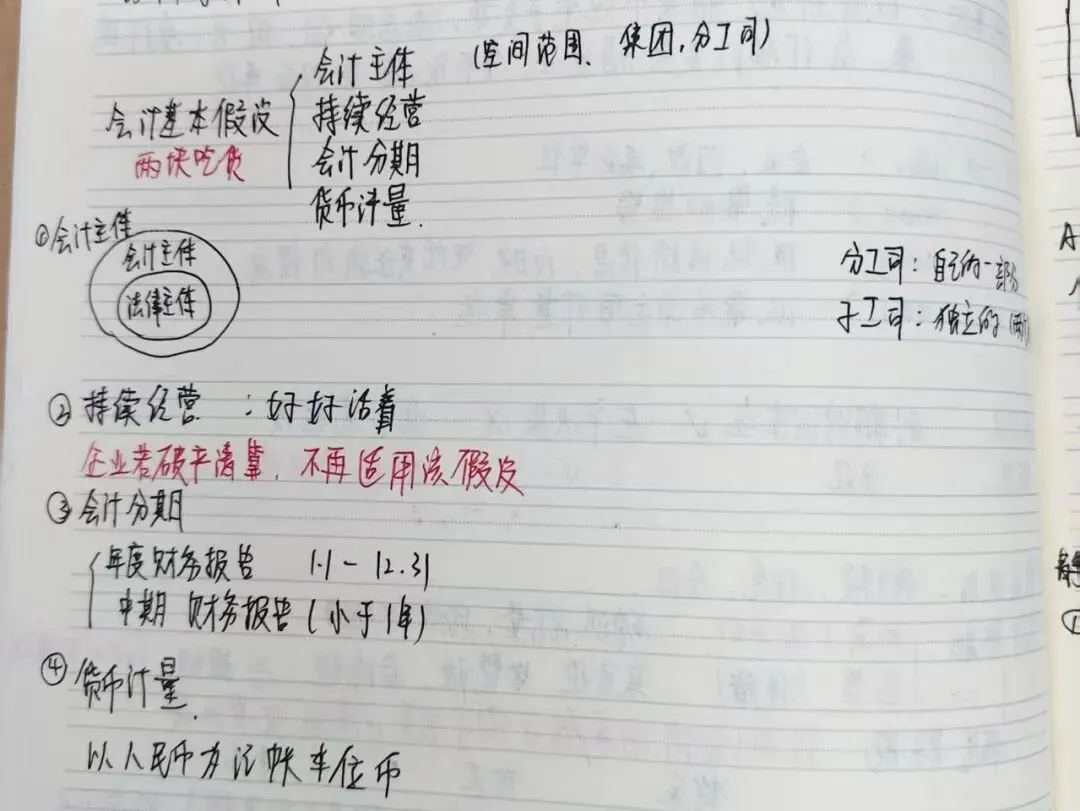 会计主体 (空间范围、集团,分公司)
会计基本假设 持续经营
两块吃货 会计分期
货币计量.
①会计主体
会计主体
法律主体
分公司:自己的一部分
子公司:独立的
② 持续经营 :好好活着
企业若破产清算,不再适用该假设
③会计分期
年度财务报告 1.1一12.31
中期 财务报告(小于1年)
④ 货币计量.
以人民币为记帐单位币